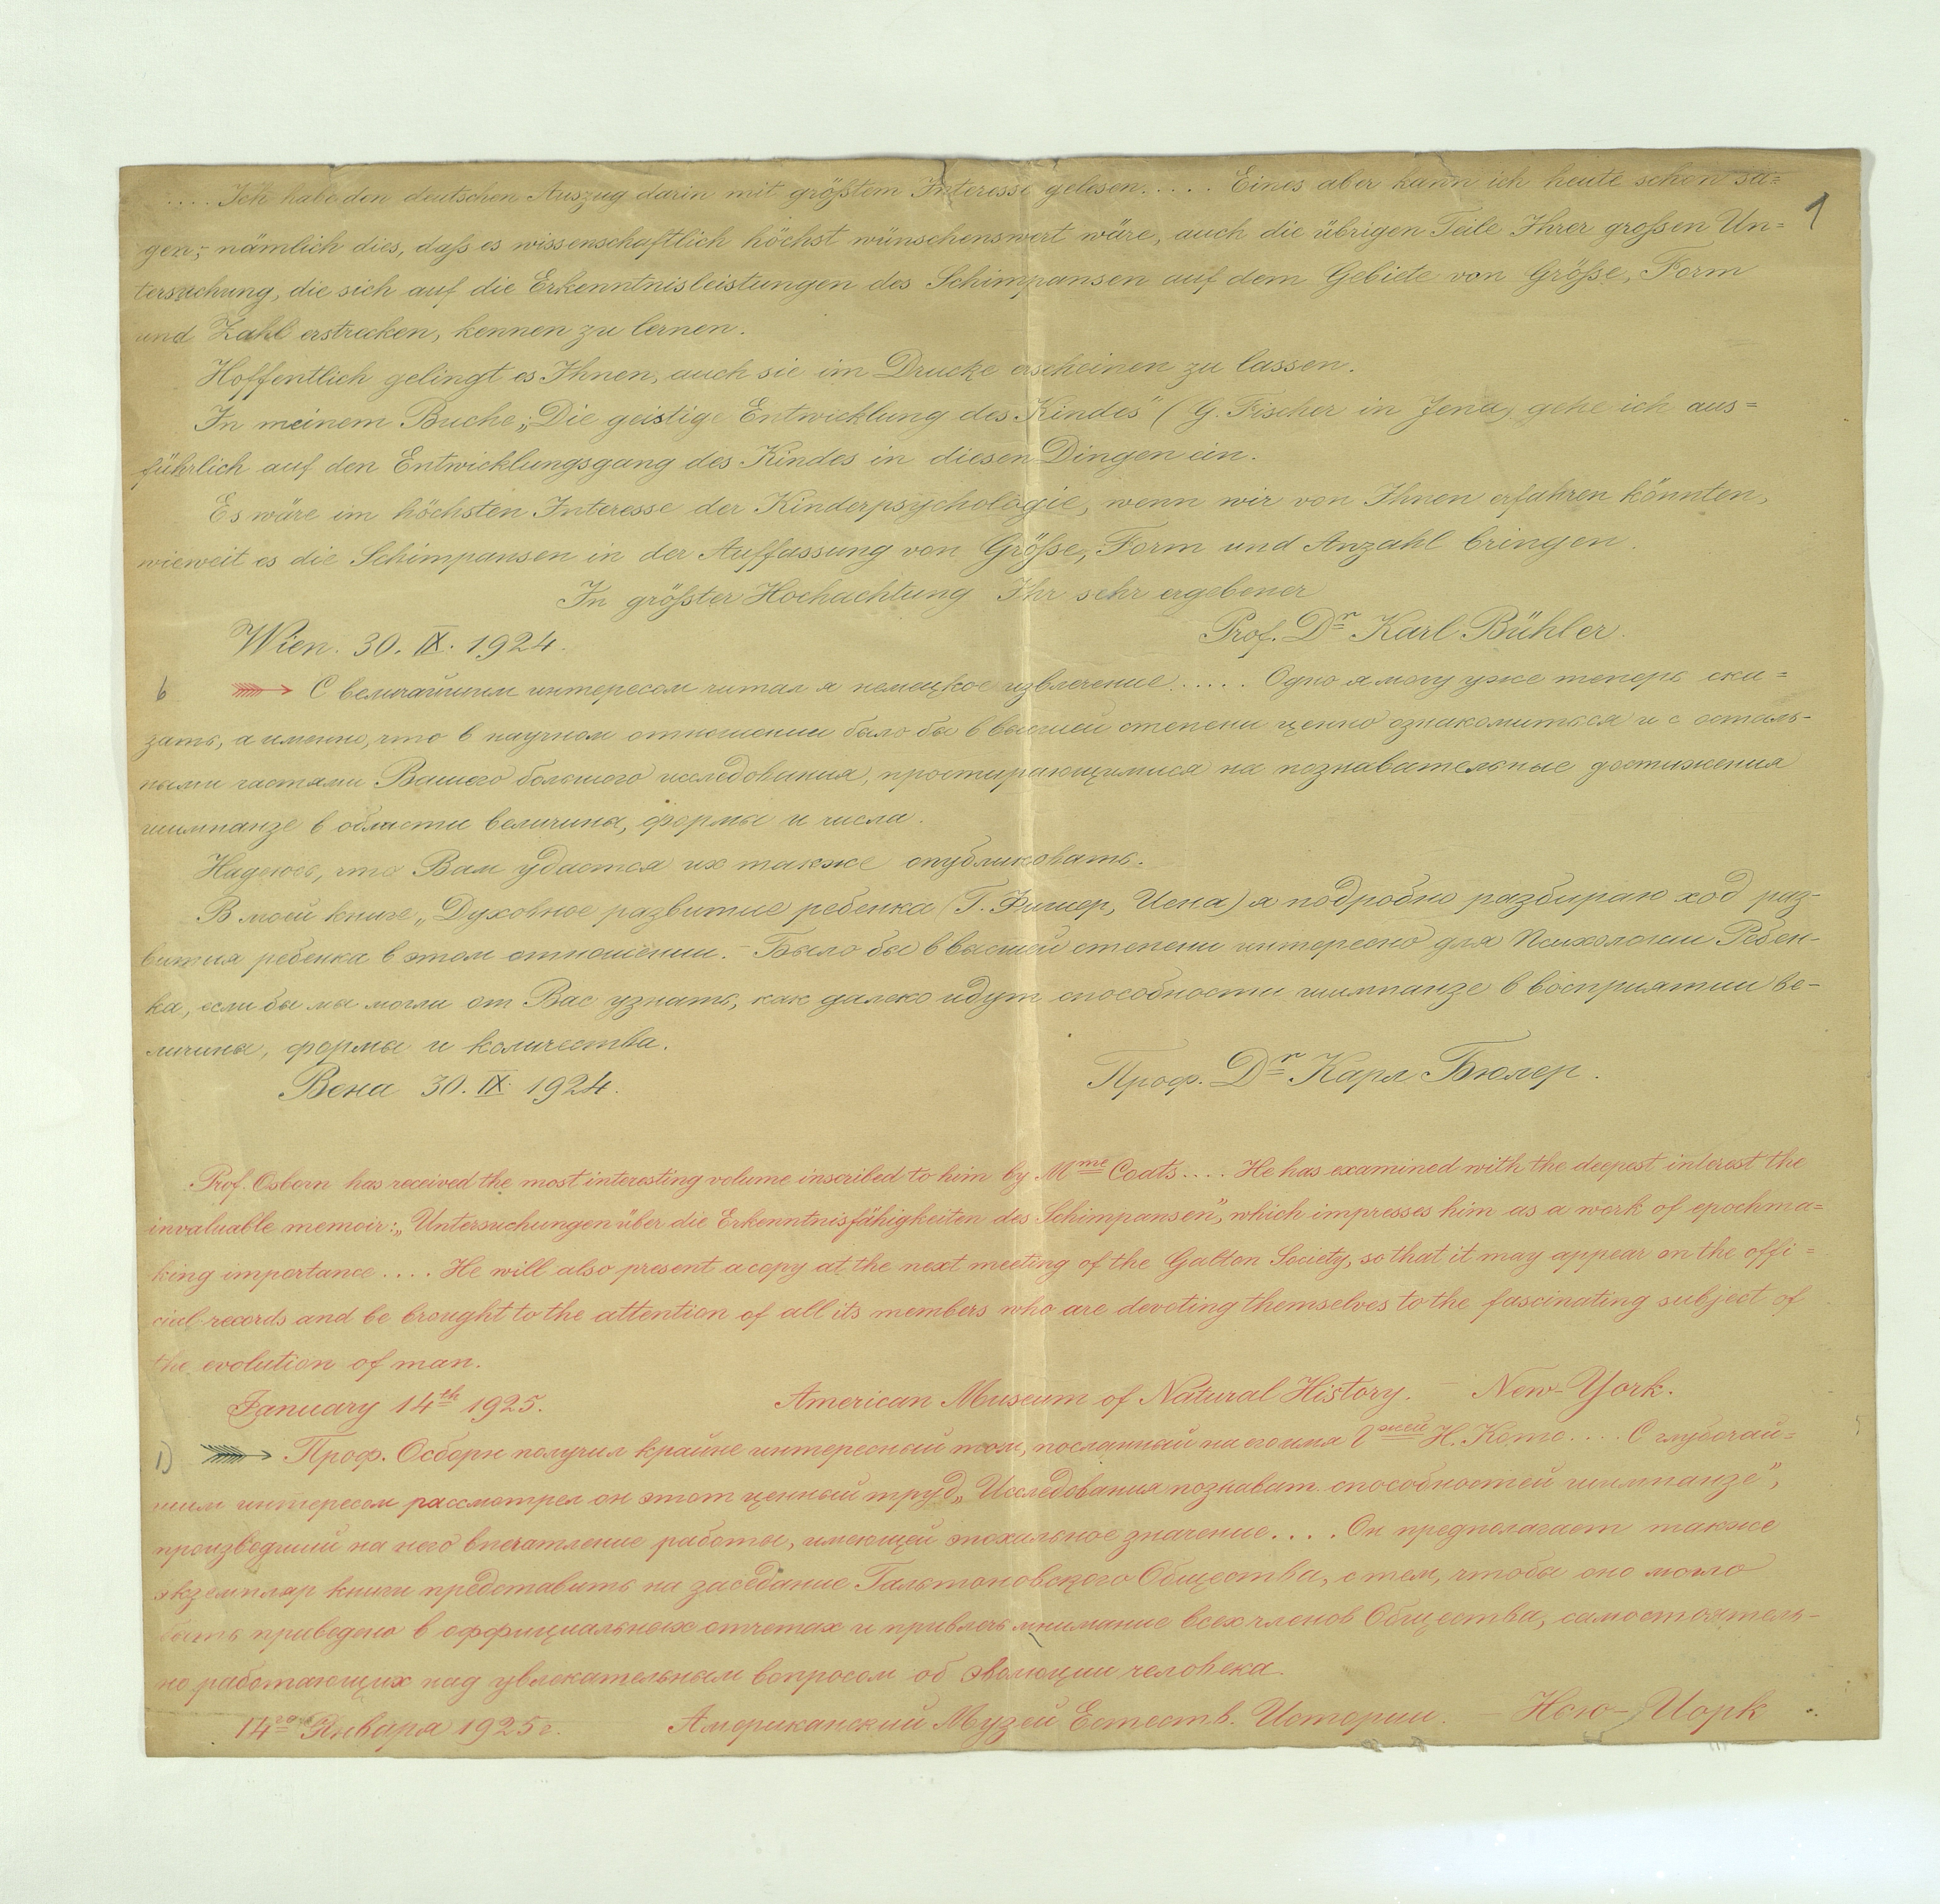 .... Ich habe den deutschen Auszug darin mit größtem Interesse gelesen..... Eines aber kann ich heute schon sa=
gen,- nämlich dies, daß es wissenschaftlich höchst wünschenswert wäre, auch die übrigen Teile Ihrer großen Un=
tersuchung, die sich auf die Erkenntnisleistungen des Schimpansen auf dem Gebiete von Größe, Form
und Zahl erstrecken, kennen zu lernen.
Hoffentlich gelingt es Ihnen, auch sie im Drucke erscheinen zu lassen.
In meinem Buche „Die geistige Entwicklung des Kindes" (G. Fischer in Jena) gehe ich aus=
führlich auf den Entwicklungsgang des Kindes in diesen Dingen ein.
Es wäre im höchsten Interesse der Kinderpsychologie, wenn wir von Ihnen erfahren könnten,
wieweit es die Schimpansen in der Auffassung von Größe, Form und Anzahl bringen.
In größter Hochachtung Ihr sehr ergebener
Wien. 30. IX. 1924. Prof. Dr Karl Bühler.
1
6 С величайшим интересом читал я немецкое извлечение..... Одно я могу уже теперь ска=
зать, а именно, что в научном отношении было бы в высшей степени ценно ознакомиться и с осталь-
ными частями Вашего большого исследования, простирающимися на познавательные достижения
шимпанзе в области величины, формы и числа.
Надеюсь, что Вам удастся их также опубликовать.
В моей книге „Духовное развитие ребенка (Г. Фишер, Иена) я подробно разбираю ход раз-
вития ребенка в этом отношении. - Было бы в высшей степени интересно для Психологии Ребен-
ка, если бы мы могли от Вас узнать, как далеко идут способности шимпанзе в восприятии ве-
личины, формы и количества.
Вена 30. IX. 1924. Проф. Dr Карл Бюлер.
Prof. Osborn has received the most interesting volume inscribed to him by Mme Coats.... He has examined with the deepest interest the
invaluable memoir: „Untersuchungen über die Erkenntnisfähigkeiten des Schimpansen", which impresses him as a work of epochma=
king importance.... He will also present a copy at the next meeting of the Galton Society, so that it may appear on the offi=
cial records and be brought to the attention of all its members who are devoting themselves to the fascinating subject of
the evolution of man.
January 14th 1925. American Museum of Natural History. - New-York.
1) Проф. Осборн получил крайне интересный том, посланный на его имя Гжей Н. Котс.... С глубочай=
шим интересом рассмотрел он этот ценный труд „Исследования познават. способностей шимпанзе",
производящий на него впечатление работы, имеющей эпохальное значение.... Он предполагает также
экземпляр книги представить на заседание Гальтоновского Общества, с тем, чтобы оно могло
быть приведено в оффициальных отчетах и привлечь внимание всех членов Общества, самостоятель-
но работающих над увлекательным вопросом об эволюции человека.
14го Января 1925г. Американский Музей Естеств. Истории. - Нью-Йорк